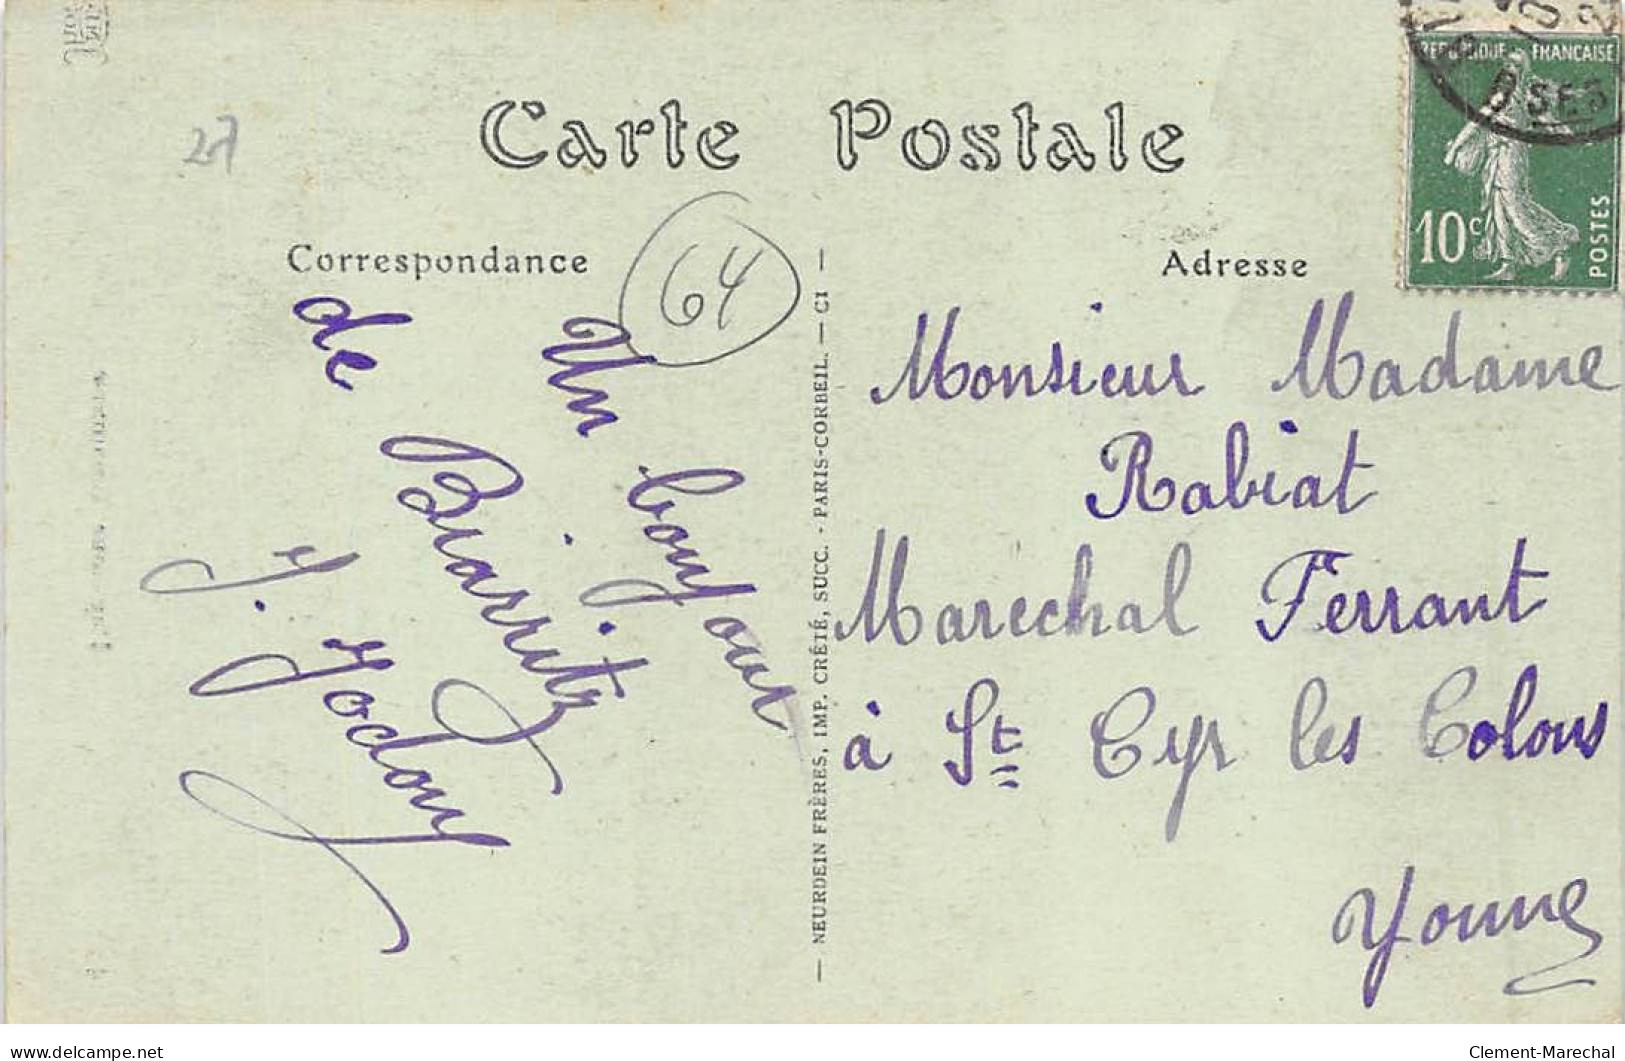 27
Carte Postale
RÉPUBLIQUE FRANÇAISE
10c
POSTES
SES
Correspondance
64
Adresse
Un bonjour
de Biarritz
J. Jodon
Monsieur Madame
Rabiat
Marechal Ferrant
à St Cyr les Colons
Yonne
— NEURDEIN FRÈRES, IMP. CRÉTÉ, SUCC. - PARIS-CORBEIL. — CI —
delcampe.net
Clement-Marechal